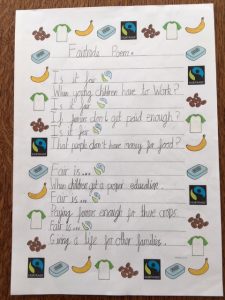 Fairtrade Poem.
Is it fair
When young children have to work?
Is it fair
If farmers don't get paid enough?
Is it fair
That people don't have money for food?
Fair is...
When children get a proper education.
Fair is...
Paying farmers enough for there crops.
Fair is...
Giving a life for other families.